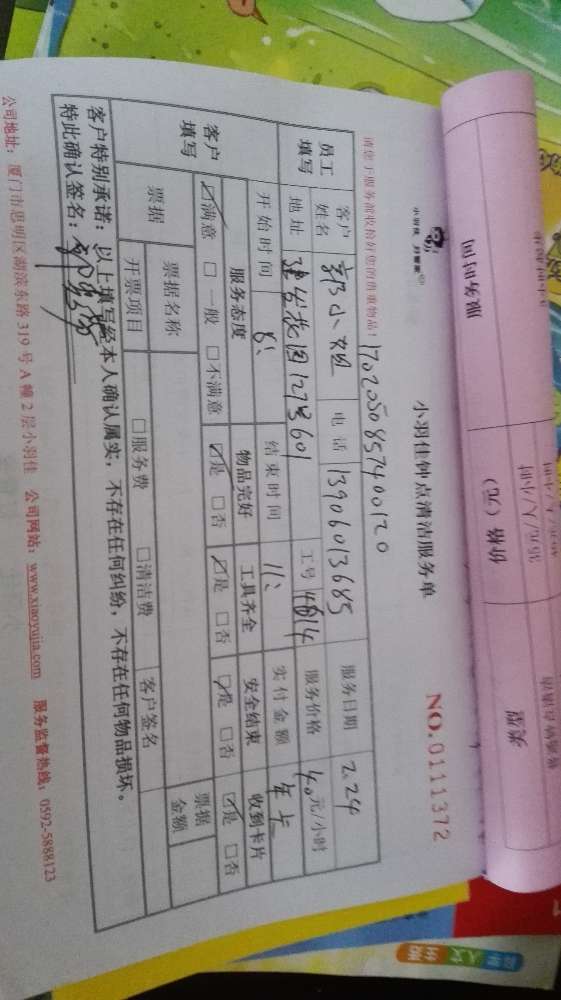 小羽佳钟点清洁服务单
NO.0111372
请您于服务前收拾好您的贵重物品！
1702050857400120
员工填写 客户姓名 郭小姐 电话 13906013685 服务日期 2.24
地址 建发花园127号601 工号 4814 服务价格 40元/小时
开始时间 8: 结束时间 11: 实付金额 年卡
客户填写 服务态度 物品完好 工具齐全 安全结束 收到卡片
☑满意 □一般 □不满意 ☑是 □否 ☑是 □否 ☑是 □否 ☑是 □否
票据 票据名称 票据金额
开票项目 □服务费 □清洁费 客户签名
客户特别承诺：以上填写经本人确认属实，不存在任何纠纷，不存在任何物品损坏。
特此确认签名：
公司地址：厦门市思明区湖滨东路 319 号 A 幢 2 层小羽佳 公司网站：www.xiaoyujia.com 服务监督热线：0592-5888123
服务时间
价格（元）